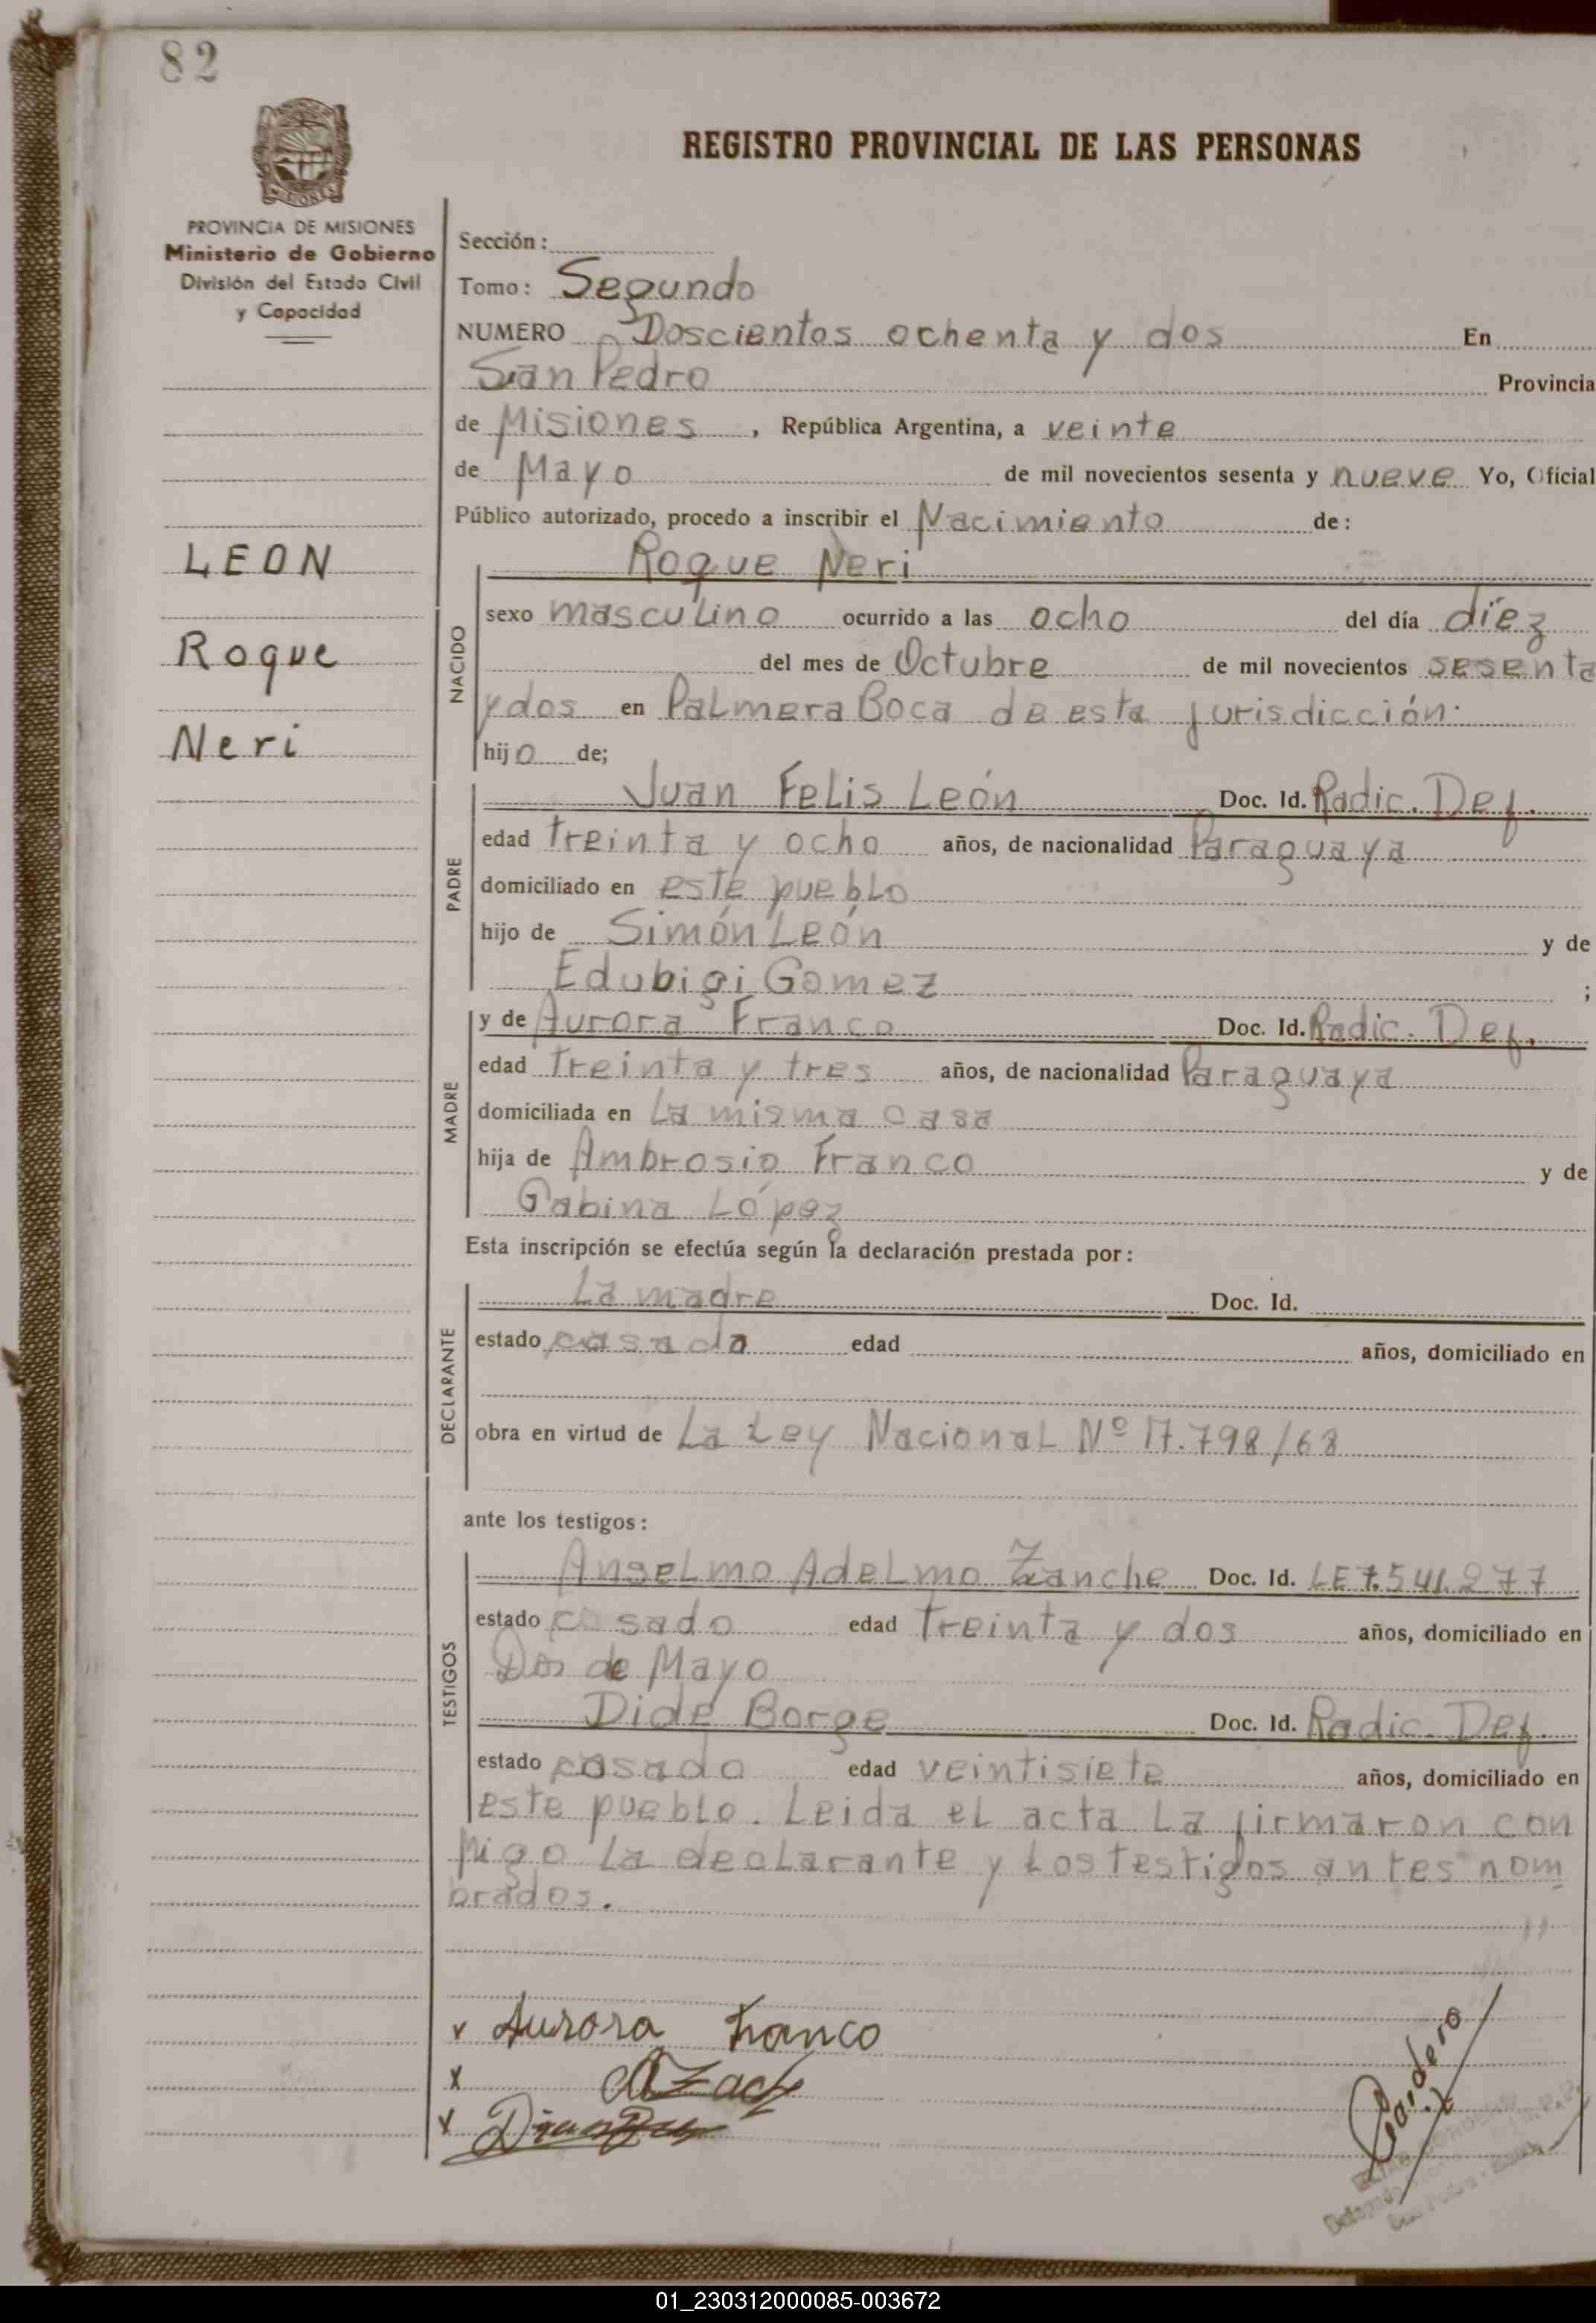 82
REGISTRO PROVINCIAL DE LAS PERSONAS
PROVINCIA DE MISIONES
Ministerio de Gobierno
División del Estado Civil
y Capacidad
LEON
Roque
Neri
Sección :
Tomo : Segundo
NUMERO Doscientos ochenta y dos En
San Pedro Provincia
de Misiones , República Argentina, a veinte
de Mayo de mil novecientos sesenta y nueve Yo, Oficial
Público autorizado, procedo a inscribir el Nacimiento de :
Roque Neri
NACIDO
sexo masculino ocurrido a las ocho del día díez
del mes de Octubre de mil novecientos sesenta
y dos en Palmera Boca de esta jurisdicción.
hijo de;
PADRE
Juan Felis León Doc. Id. Radic. Def.
edad treinta y ocho años, de nacionalidad Paraguaya
domiciliado en este pueblo
hijo de Simón León y de
Edubigi Gomez ;
MADRE
y de Aurora Franco Doc. Id. Radic. Def.
edad treinta y tres años, de nacionalidad Paraguaya
domiciliada en La misma casa
hija de Ambrosio Franco y de
Gabina López
Esta inscripción se efectúa según la declaración prestada por :
DECLARANTE
La madre Doc. Id.
estado casada edad años, domiciliado en
obra en virtud de La Ley Nacional Nº 17.798/68
ante los testigos :
TESTIGOS
Anselmo Adelmo Zanche Doc. Id. LE 7.541.277
estado casado edad treinta y dos años, domiciliado en
Dos de Mayo
Dide Borge Doc. Id. Radic. Def.
estado casado edad veintisiete años, domiciliado en
este pueblo. Leida el acta La firmaron con
migo La declarante y Los testigos antes nom
brados.
x Aurora Franco
x
x
01_230312000085-003672